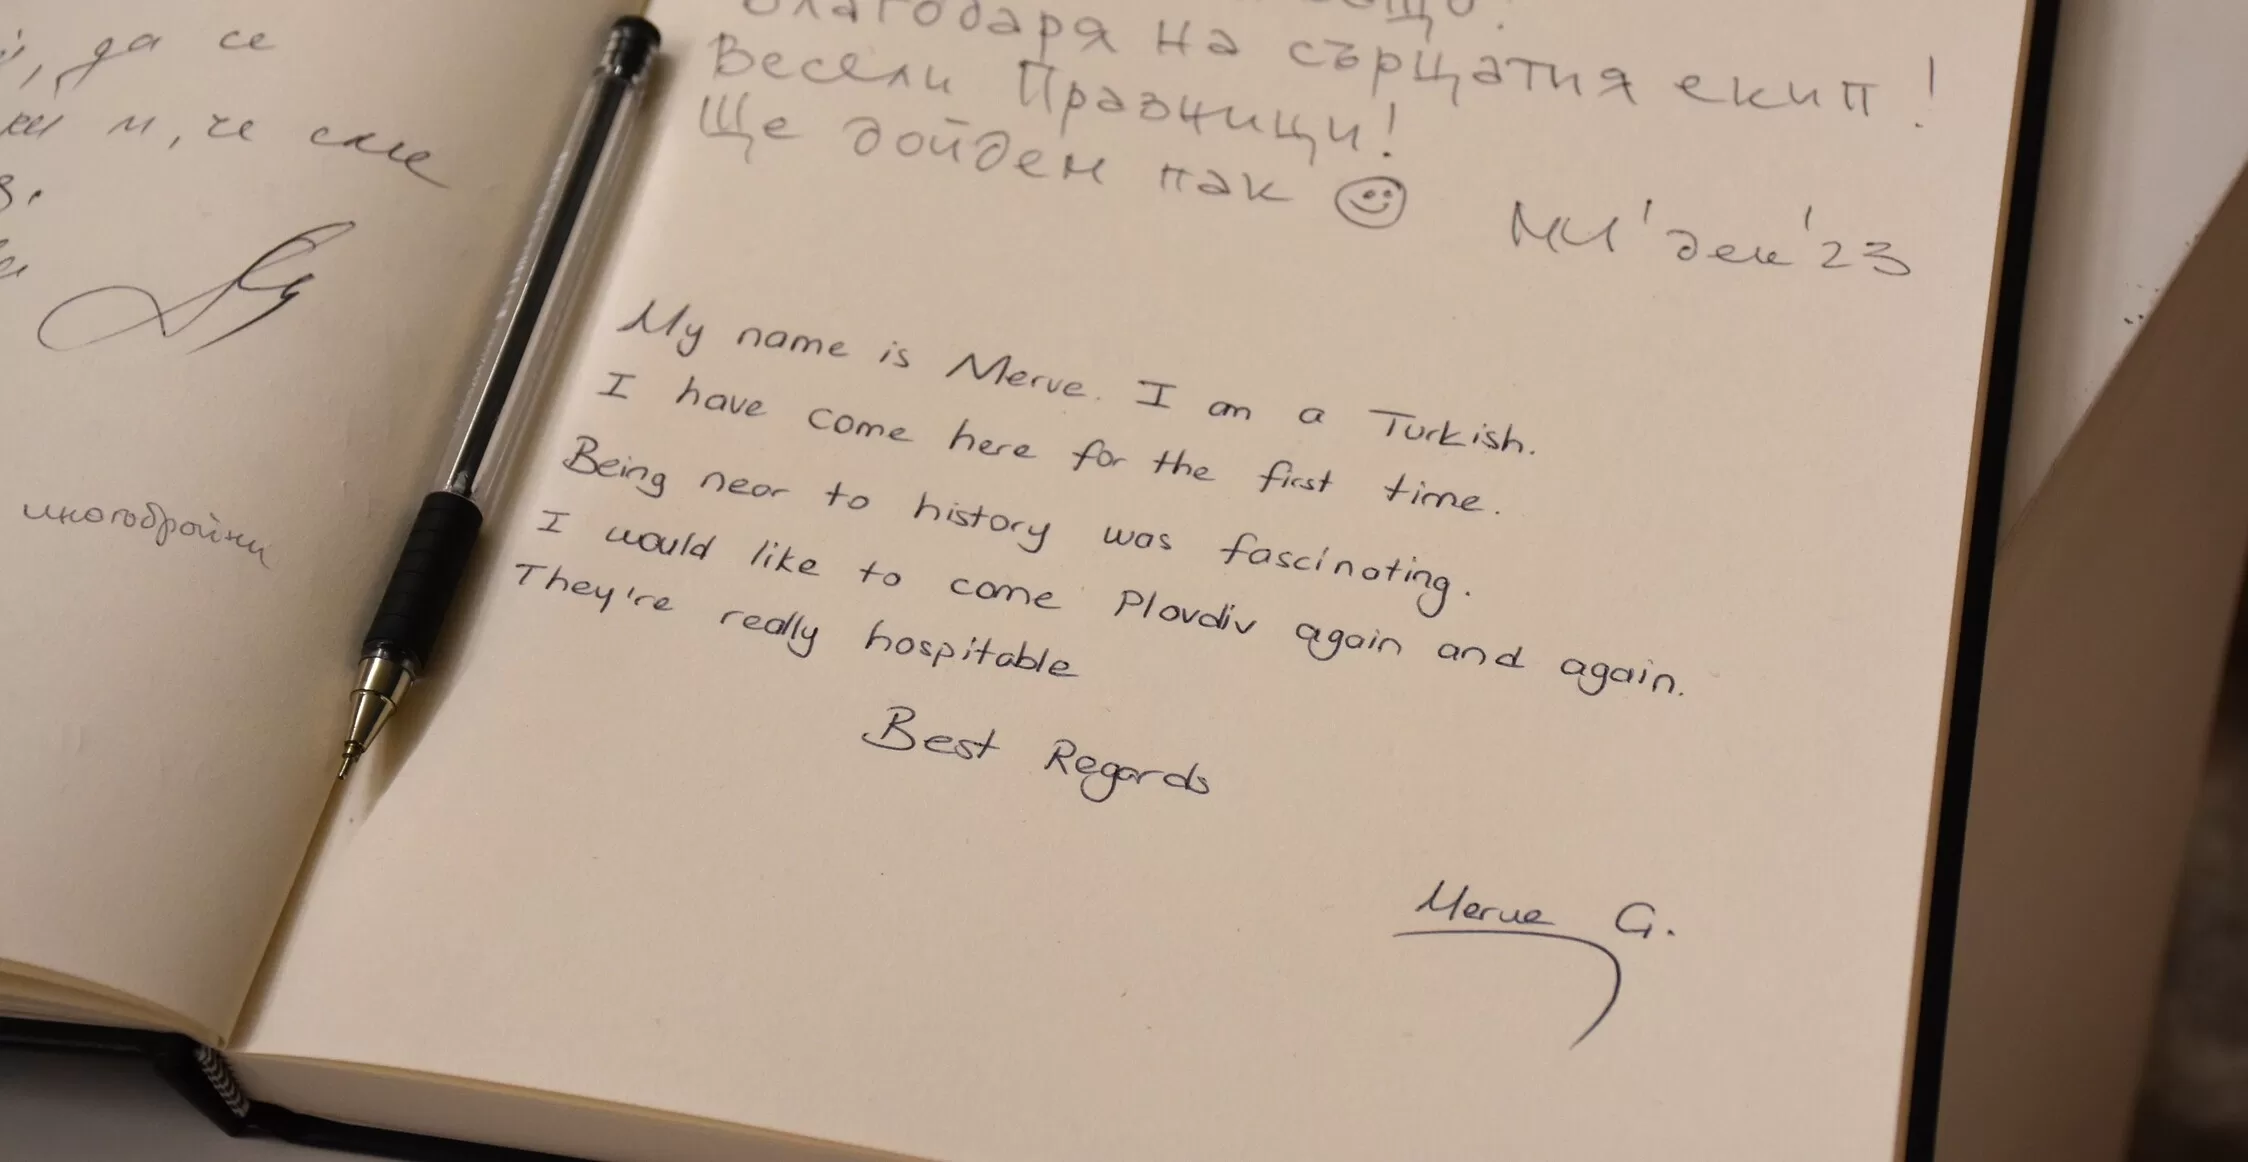 да се
м, че сме
многобройни
Благодаря на сърцатия екип!
Весели Празници!
Ще дойдем пак
ден '23
My name is Merve. I am a Turkish.
I have come here for the first time.
Being near to history was fascinating.
I would like to come Plovdiv again and again.
They're really hospitable
Best Regards
Merve G.